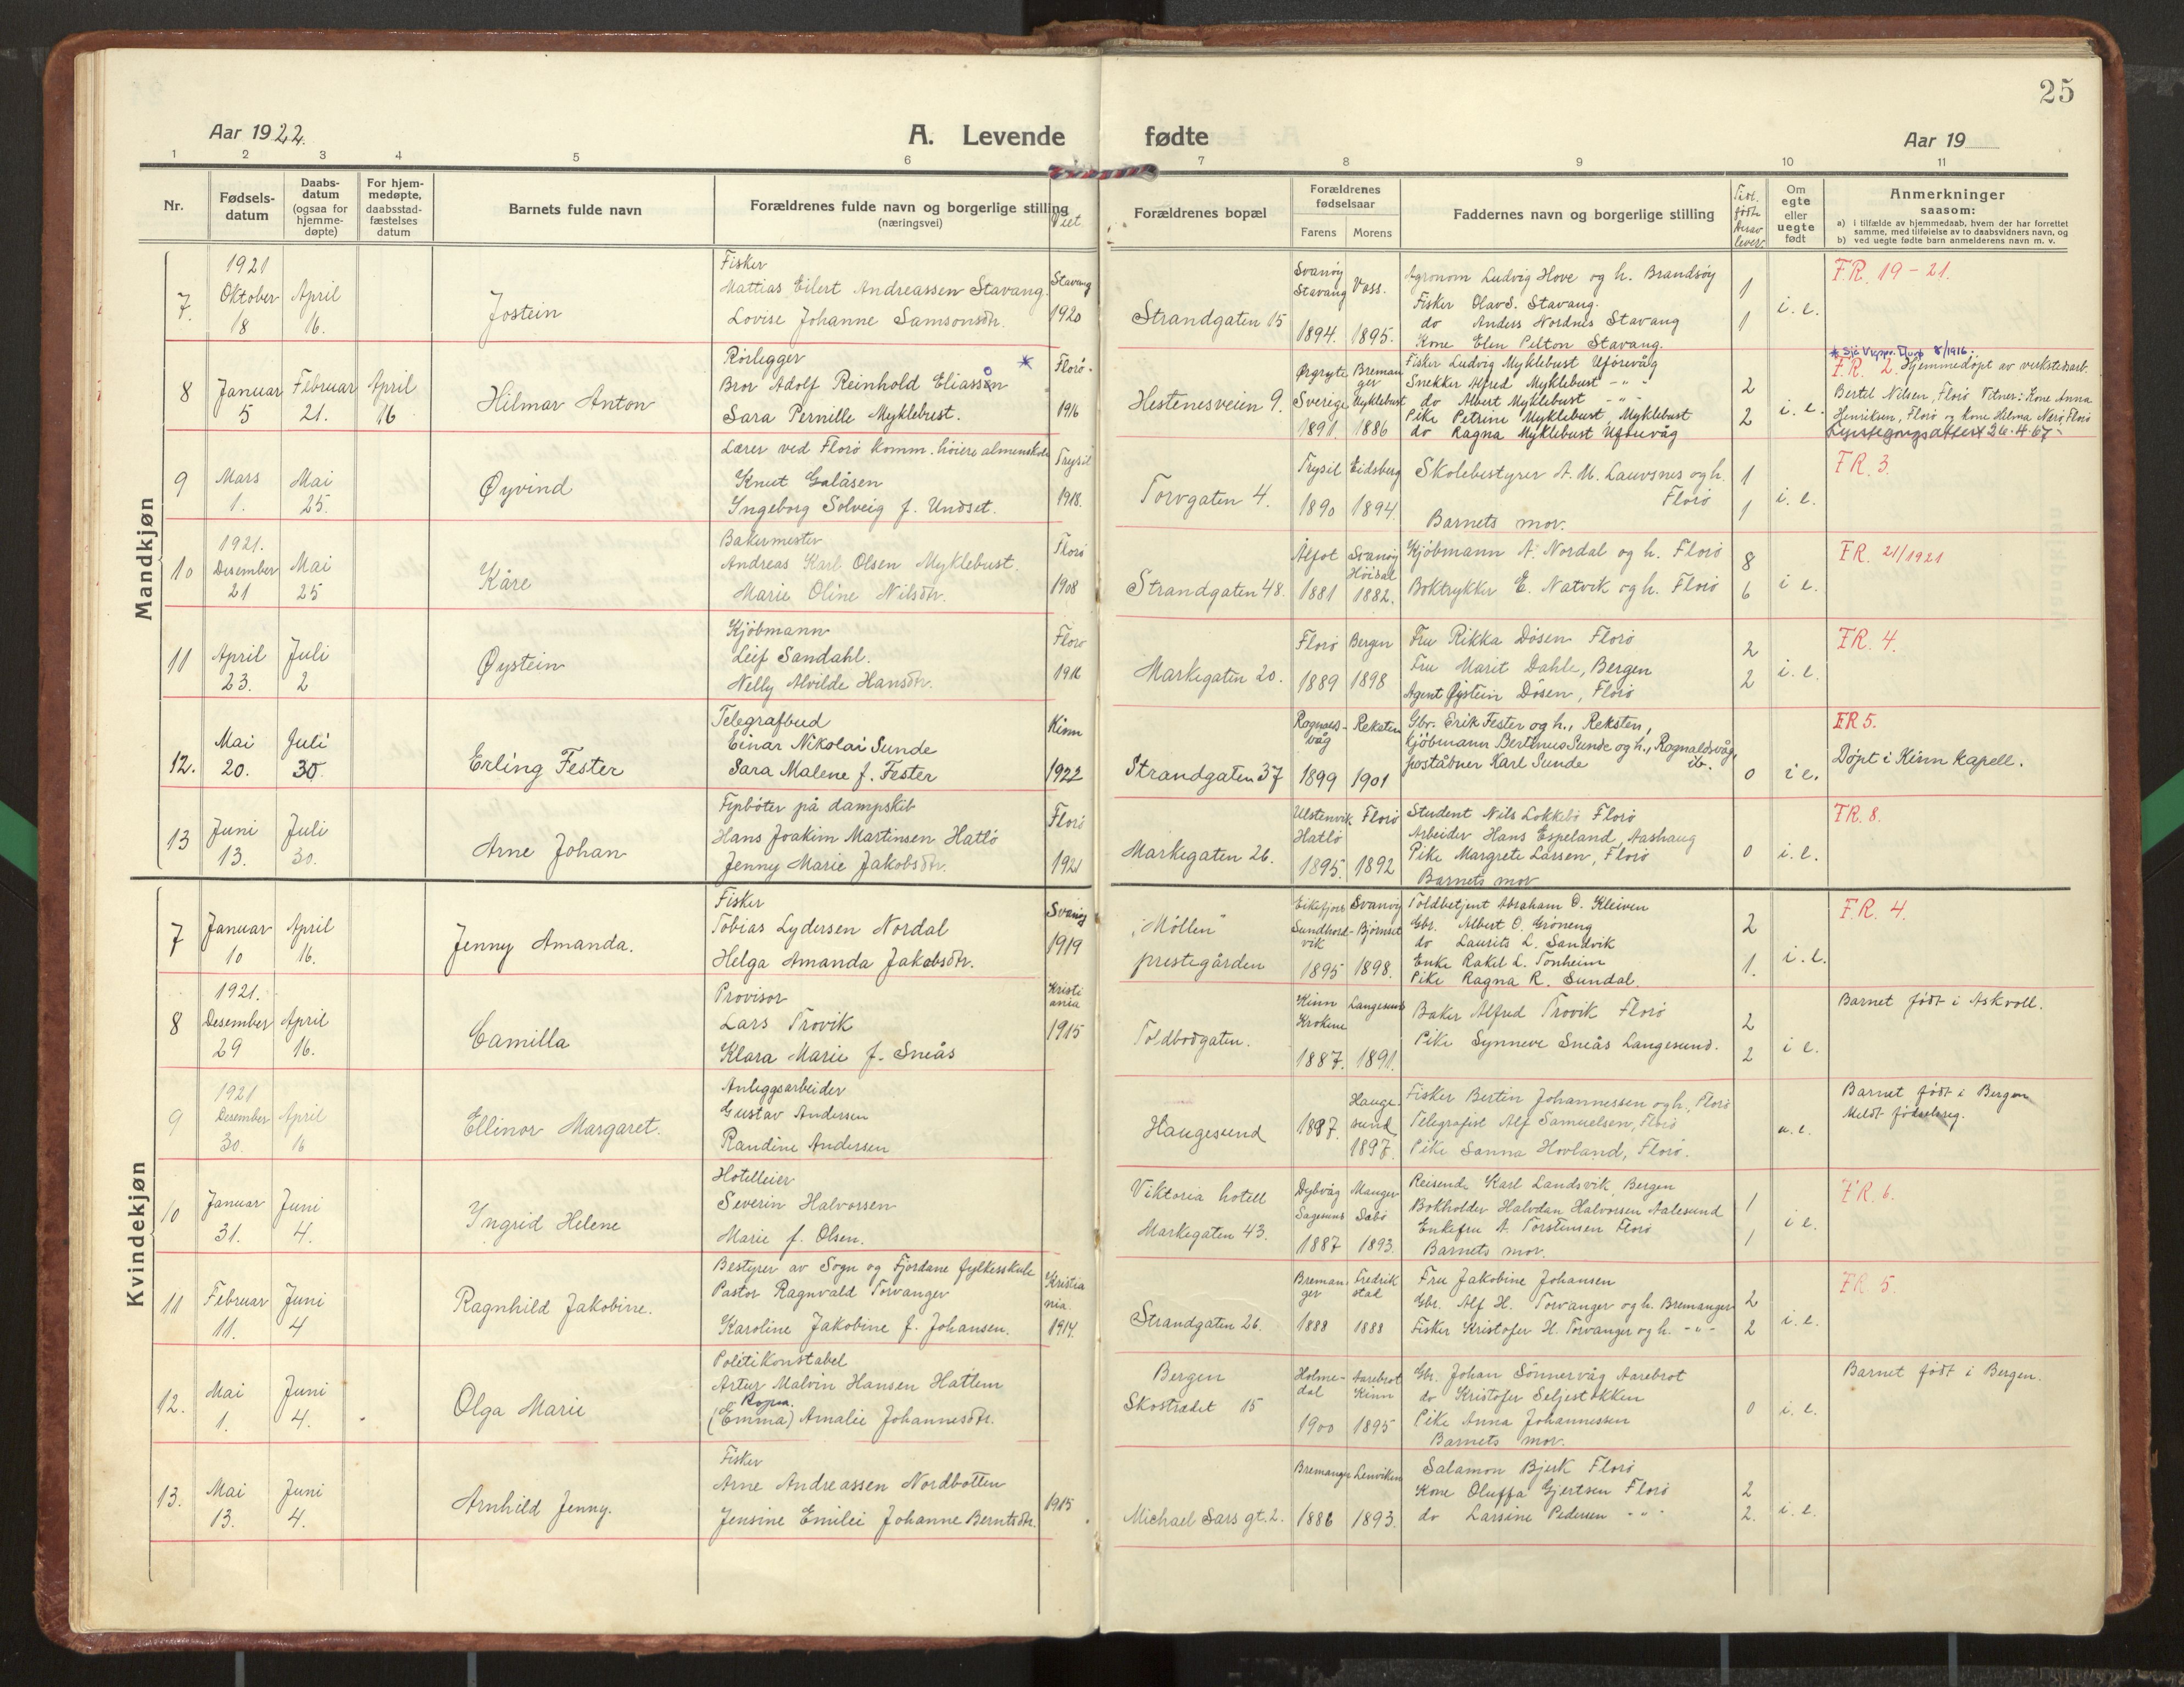 25
Aar 1922.
A. Levende
fødte
Aar 19
1 2 3 4 5 6 7 8 9 10 11
Nr.
Fødsels-
datum
Daabs-
datum
(ogsaa for
hjemme-
døpte)
For hjem-
medøpte,
daabsstad-
fæstelses
datum
Barnets fulde navn
Forældrenes fulde navn og borgerlige stilling
(næringsvei)
Viet
Forældrenes bopæl
Forældrenes
fødselsaar
Farens Morens
Faddernes navn og borgerlige stilling
Tidl.
fødte
lever.
Om
egte
eller
uegte
født
Anmerkninger
saasom:
a) i tilfælde av hjemmedaab, hvem der har forrettet
samme, med tilføielse av to daabsvidners navn, og
b) ved uegte fødte barn anmelderens navn m. v.
Mandkjøn
7.
1921
Oktober
18
April
16.
Jostein
Fisker
Mattias Eilert Andreassen Stavang.
Lovise Johanne Samsonsdtr.
Stavang
1920
Strandgaten 15
Svanøy
Stavang
1894.
Voss.
1895.
Agronom Ludvig Hove og h. Brandsøy
Fisker Olav S. Stavang.
do Anders Nordnes Stavang
Kone Elen Pelton Stavang.
1
1
i. e.
F.R. 19-21.
8
Januar
5
Februar
21.
April
16
Hilmar Anton
Rørlegger
Bror Adolf Reinhold Eliasson *
Sara Pernille Myklebust.
Florø.
1916
Hestenesveien 9.
Ørgryte
Sverige
1891.
Breman
ger
Myklebust
1886
Fisker Ludvig Myklebust Uførevåg
Snekker Alfred Myklebust - " -
do Albert Myklebust - " -
Pike Petrine Myklebust Myklebust
do Ragna Myklebust Uførevåg
2
2
i. e.
8/1916.
F.R. 2. Hjemmedøpt av verkstedsarb.
Bertel Nilsen, Florø Vitner: Kone Anna
Henriksen, Florø og Kone Hilma Nærø, Florø
26.4.67.
9
Mars
1.
Mai
25.
Øyvind
Lærer ved Florø komm. høiere almenskole
Knut Galåsen
Ingeborg Solveig f. Undset.
Trysil
1918.
Torvgaten 4.
Trysil
1890
Eidsberg
1894.
Skolebestyrer A. M. Lauvsnes og h.
Florø
Barnets mor.
1
1
i. e.
F.R. 3.
10
1921.
Desember
21
Mai
25
Kåre
Bakermester
Andreas Karl Olsen Myklebust.
Marie Oline Nilsdtr.
Florø
1908
Strandgaten 48.
Ålfot
1881
Svanøy
Høidal
1882.
Kjøbmann A. Nordal og h. Florø
Boktrykker E. Natvik og h. Florø
8
6
i e.
F.R. 21/1921
11
April
23.
Juli
2
Øystein
Kjøbmann
Leif Sandahl.
Nelly Alvilde Hansdtr.
Florø
Markegaten 20.
Florø
1889
Bergen
1898
Fru Rikka Døsen Florø
Fru Marit Dahle, Bergen
Agent Øystein Døsen, Florø
2
2
i. e.
F.R. 4.
12.
Mai
20.
Juli
30.
Erling Fester
Telegrafbud
Einar Nikolai Sunde
Sara Malene f. Fester
Kinn
1922
Strandgaten 37
Rognals-
våg
1899
Reksten
1901
Gbr. Erik Fester og h., Reksten,
Kjøbmann Bertinus Sunde og h., Rognaldsvåg,
poståbner Karl Sunde ib.
0
i e.
FR 5.
Døpt i Kinn Kapell.
13
Juni
13.
Juli
30.
Arne Johan
Fyrbøter på dampskib
Hans Joakim Martinsen Hatlø
Jenny Marie Jakobsdtr.
Florø
1921
Markegaten 26.
Ulstenvik
Hatlø
1895.
Florø
1892
Student Nils Løkkebø Florø
Arbeider Hans Espeland, Aashaug
Pike Margrete Larsen, Florø
Barnets mor
0
i. e.
F.R. 8.
Kvindekjøn
7
Januar
10
April
16.
Jenny Amanda.
Fisker
Tobias Lydersen Nordal
Helga Amanda Jakobsdtr.
Svanøy
1919
"Møllen"
prestegården
Eikefjord
Sundhord-
vik
1895
Svanøy
Bjørnset
1898.
Toldbetjent Abraham O. Kleiven
Gbr. Albert O. Grøneng
do Laurits L. Sandvik
Enke Rakel L. Tonheim
Pike Ragna R. Sundal.
2
1.
i. e.
F.R. 4.
8
1921.
Desember
29
April
16.
Camilla
Provisor
Lars Trovik
Klara Marie f. Sneås
Kristi
ania
1915
Toldbodgaten.
Kinn
Krokene
1887.
Langesund
1891.
Baker Alfred Trovik Florø
Pike Synneve Sneås Langesund.
2
2
i e.
Barnet født i Askvoll.
9
1921
Desember
30.
April
16
Ellinor Margaret.
Anleggsarbeider
Gustav Andersen
Randine Andersen
Haugesund
1887.
Hauge-
sund
1897.
Fisker Bertin Johannessen og h., Florø
Telegrafist Alf Samuelsen, Florø
Pike Sanna Hovland, Florø.
u. e.
Barnet født i Bergen
Meldt fødselsreg.
10
Januar
31.
Juni
4.
Ingrid Helene
Hotelleier
Severin Halvorsen
Marie f. Olsen.
Viktoria hotell
Markegaten 43.
Dybvåg
Sagesund
1887
Manger
Sæbø
1893.
Reisende Karl Landsvik, Bergen
Bokholder Halvdan Halvorsen Aalesund
Enkefru A. Torstensen Florø
Barnets mor.
1
1
i e.
F.R. 6.
11
Februar
11.
Juni
4
Ragnhild Jakobine.
Bestyrer av Sogn og Fjordane fylkesskule
Pastor Ragnvald Torvanger
Karoline Jakobine f. Johansen.
Kristia
nia.
1914.
Strandgaten 26.
Breman
ger
1888
Fredrik
stad
1888
Fru Jakobine Johansen
Gbr. Alf H. Torvanger og h. Bremanger
Fisker Kristofer H. Torvanger og h. - " -
2
2
i. e.
F.R. 5.
12.
Mai
1.
Juni
4.
Olga Marie
Politikonstabel
Artur Malvin Hansen Hatlem
(Emma) Amalie Johannesdtr.
Bergen
Skostrædet 15
Holme-
dal
1900
Aarebrot
Kinn
1895
Gbr. Johan Sønnervåg Aarebrot
do Kristofer Seljestokken
Pike Anna Johannessen
Barnets mor.
0
i. e.
Barnet født i Bergen.
13.
Mai
13.
Juni
4.
Arnhild Jenny.
Fisker
Arne Andreassen Nordbotten
Jensine Emilei Johanne Berntsdtr.
1915
Michael Sars gt. 2.
Bremanger
1886
Lenviken
1893.
Salamon Bjerk Florø
Kone Oluffa Gjertsen Florø
do Larsine Pedersen - " -
2
2.
i. e.